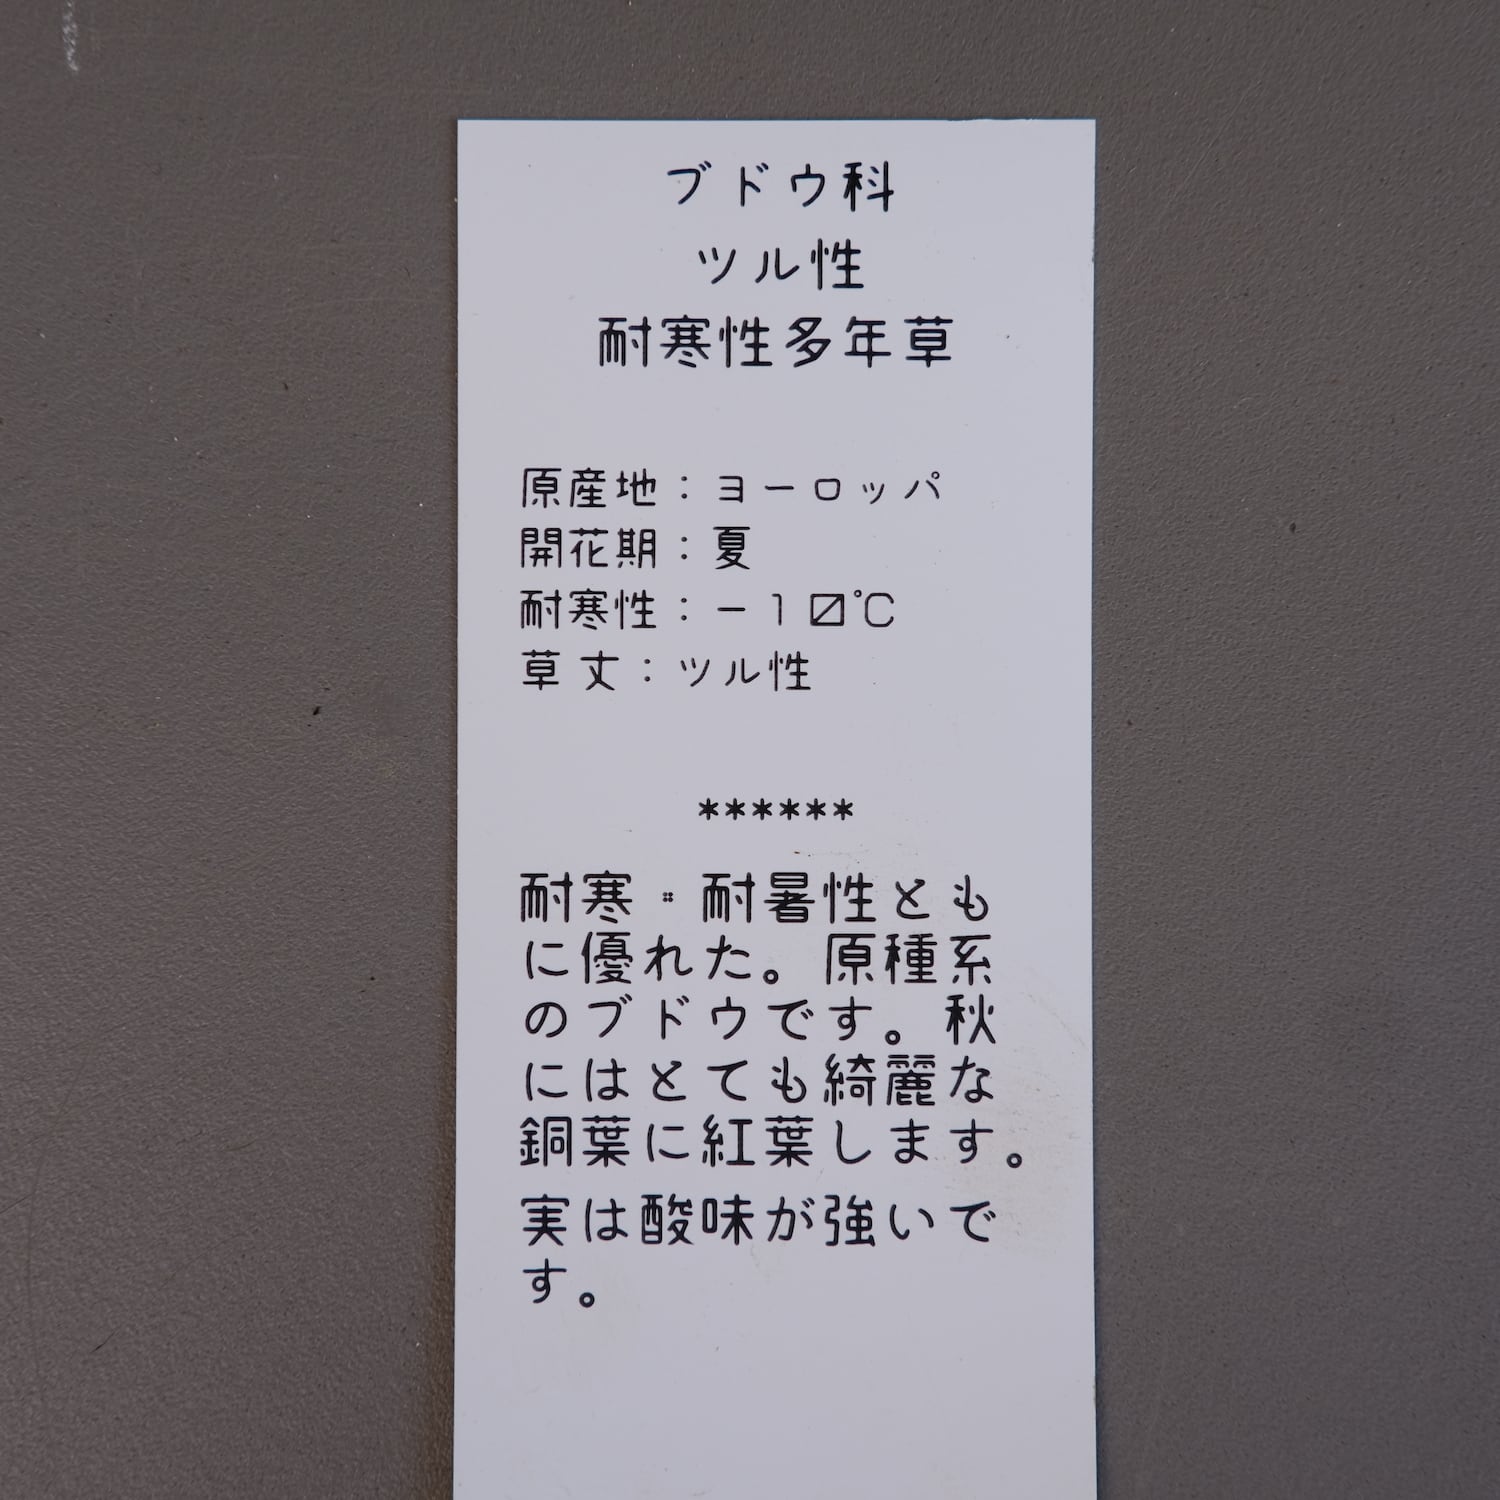 ブドウ科
ツル性
耐寒性多年草
原産地：ヨーロッパ
開花期：夏
耐寒性：－１０℃
草丈：ツル性
******
耐寒・耐暑性とも
に優れた。原種系
のブドウです。秋
にはとても綺麗な
銅葉に紅葉します。
実は酸味が強いで
す。